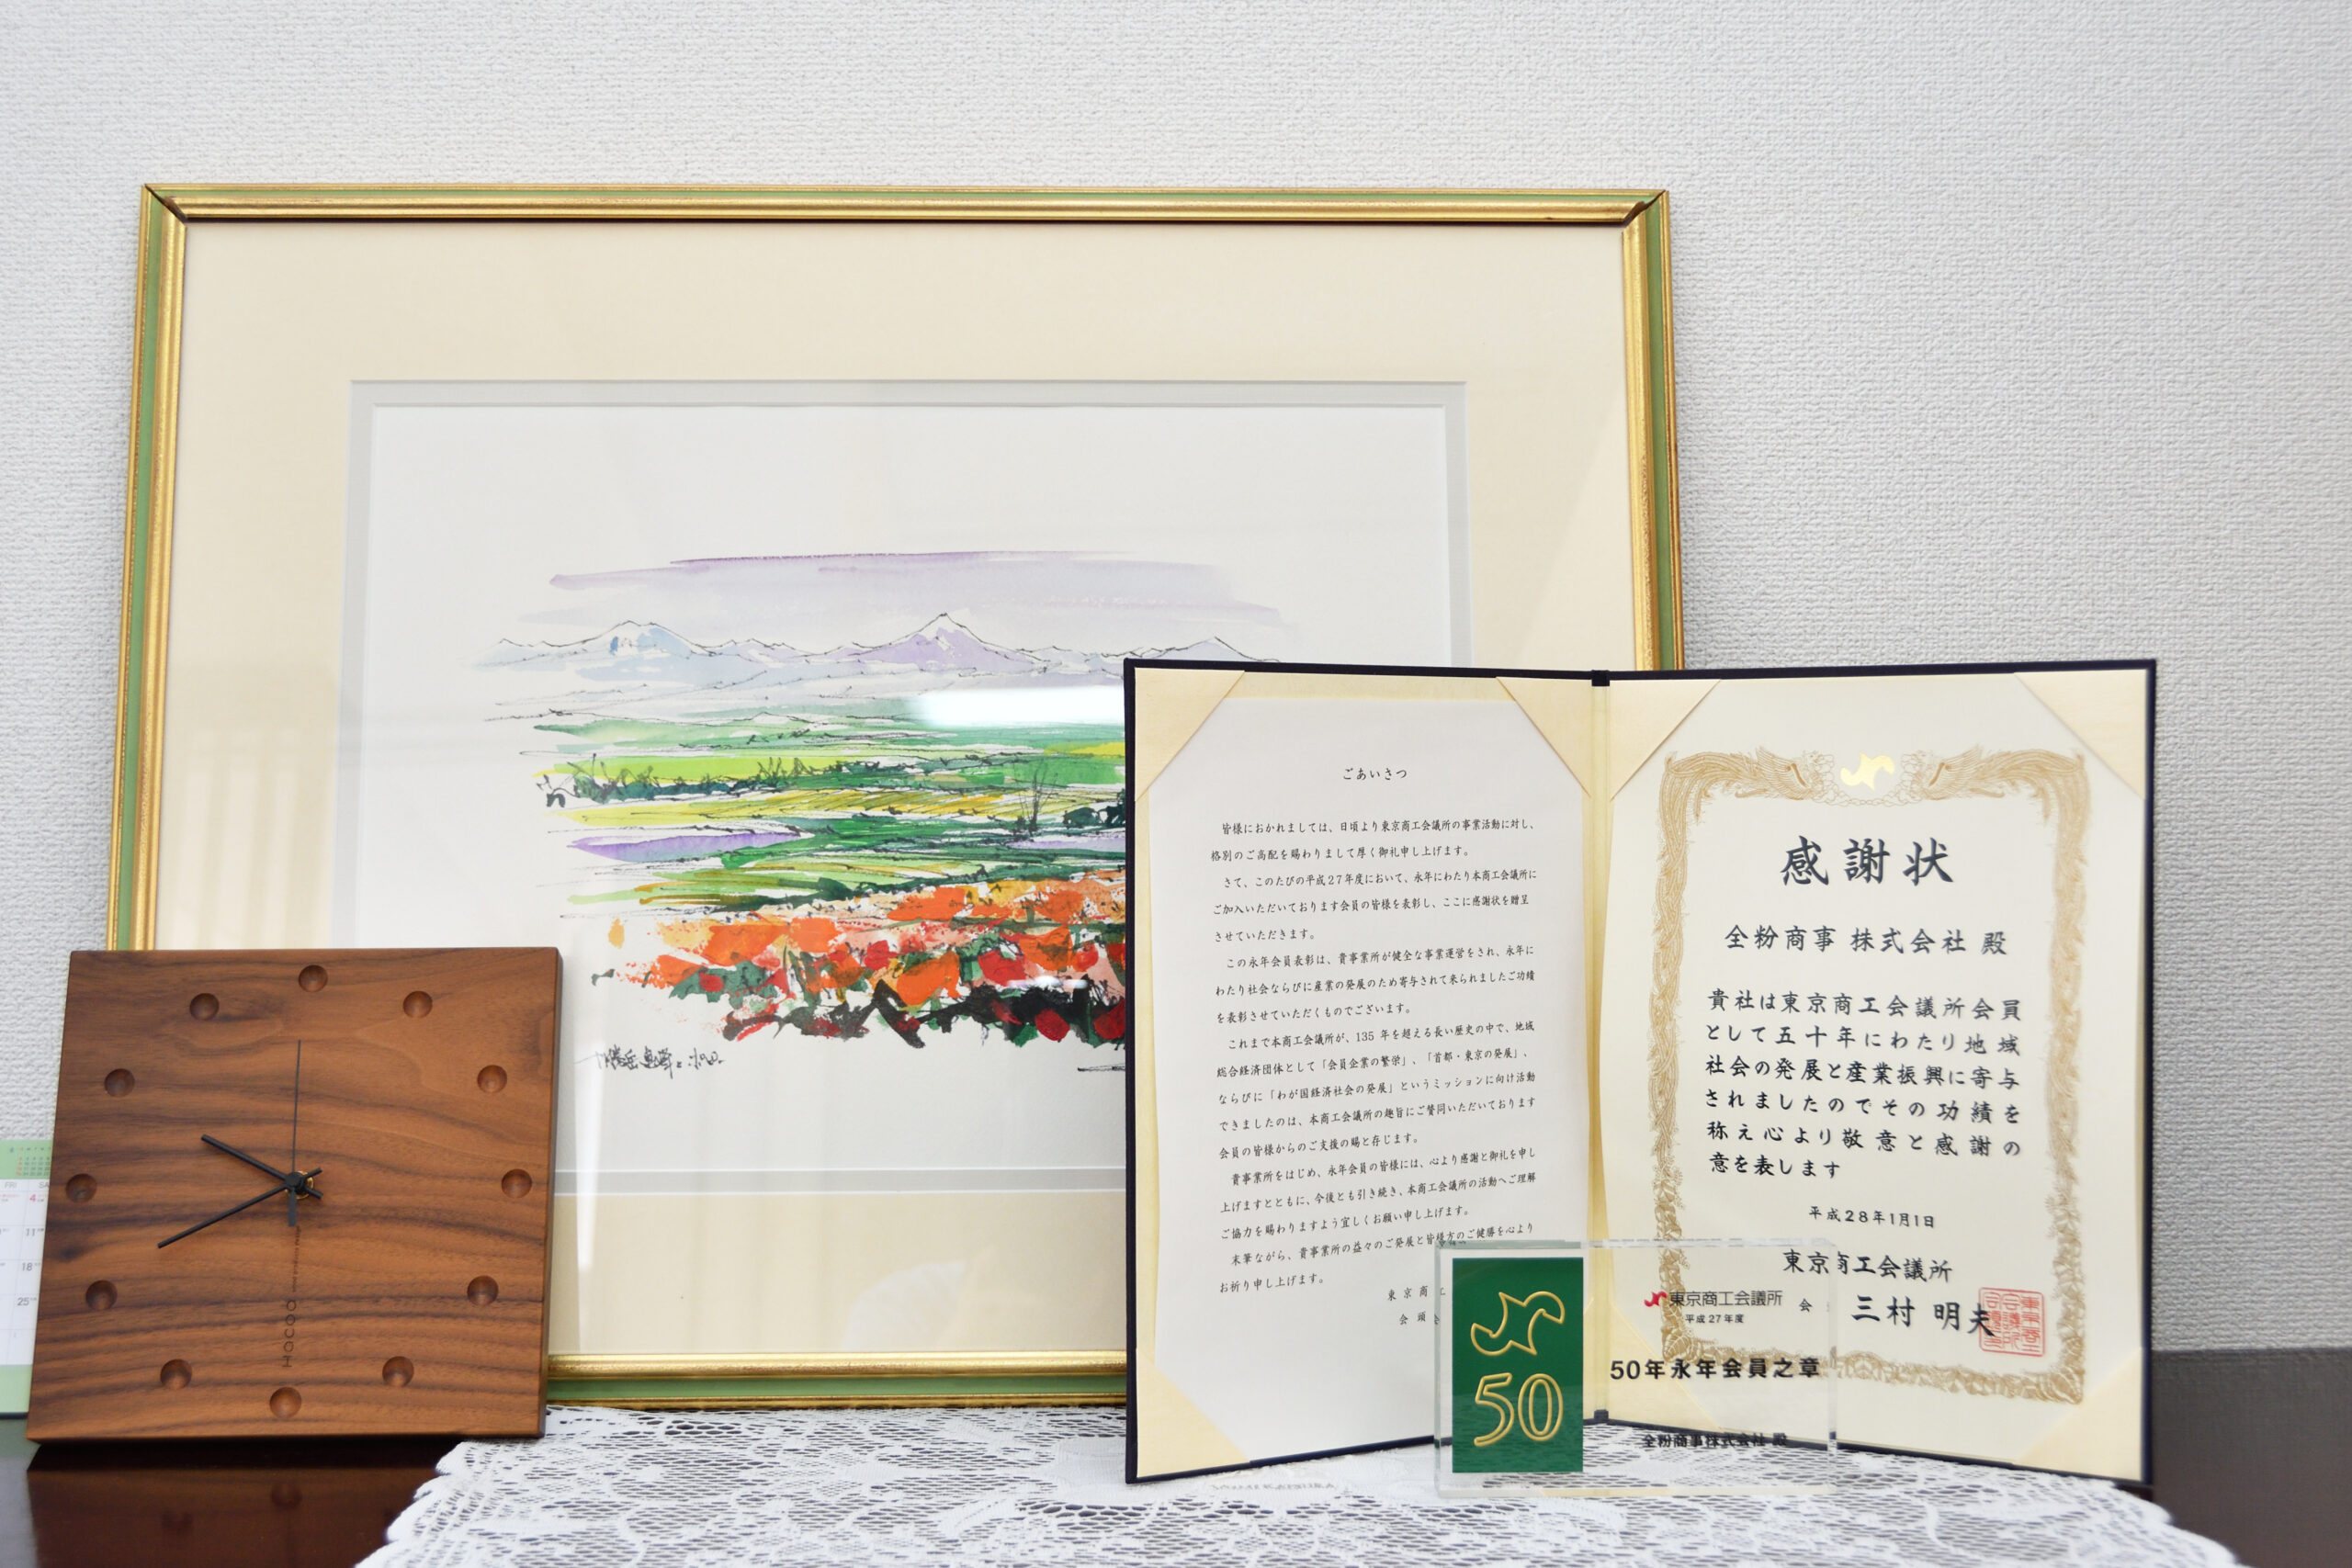 FRI
SA
4
11
18
25
HOCOO
ごあいさつ
皆様におかれましては、日頃より東京商工会議所の事業活動に対し、
格別のご高配を賜わりまして厚く御礼申し上げます。
さて、このたびの平成27年度において、永年にわたり本商工会議所に
ご加入いただいております会員の皆様を表彰し、ここに感謝状を贈呈
させていただきます。
この永年会員表彰は、貴事業所が健全な事業運営をされ、永年に
わたり社会ならびに産業の発展のため寄与されて来られましたご功績
を表彰させていただくものでございます。
これまで本商工会議所が、135 年を超える長い歴史の中で、地域
総合経済団体として「会員企業の繁栄」、「首都・東京の発展」、
ならびに「わが国経済社会の発展」というミッションに向け活動
できましたのは、本商工会議所の趣旨にご賛同いただいております
会員の皆様からのご支援の賜と存じます。
貴事業所をはじめ、永年会員の皆様には、心より感謝と御礼を申し
上げますとともに、今後とも引き続き、本商工会議所の活動へご理解
ご協力を賜わりますよう宜しくお願い申し上げます。
末筆ながら、貴事業所の益々のご発展と皆様方のご健勝を心より
お祈り申し上げます。
東京商工
会頭
感謝状
全粉商事 株式会社 殿
貴社は東京商工会議所会員
として五十年にわたり地域
社会の発展と産業振興に寄与
されましたのでその功績を
称え心より敬意と感謝の
意を表します
平成28年1月1日
東京商工会議所
会 三村 明夫
50
東京商工会議所
平成27年度
50年永年会員之章
全粉商事株式会社 殿